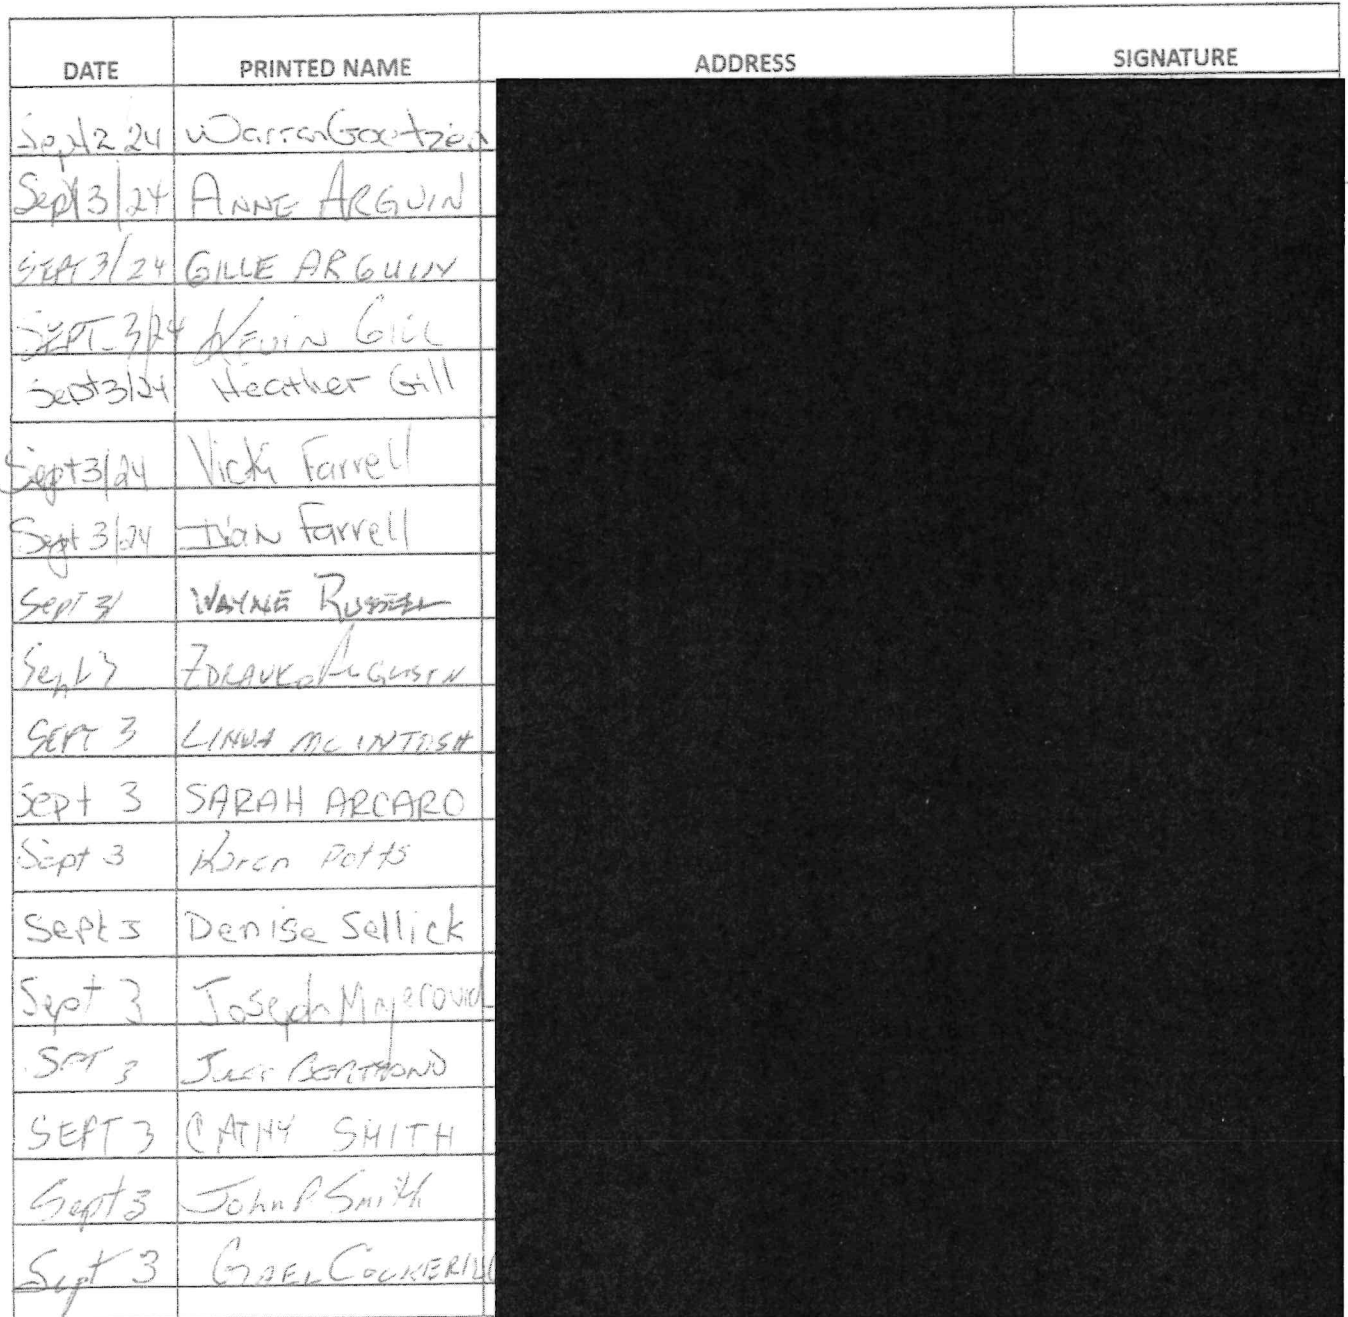 DATE PRINTED NAME ADDRESS SIGNATURE
Sept 2 24 Warren
Sept 3/24 ANNE ARGUIN
SEPT 3/24 GILLE ARGUIN
SEPT 3/24 KEVIN GILL
Sept 3/24 Heather Gill
Sept 3/24 Vicki Farrell
Sept 3/24 Ivan Farrell
Sept 3/ WAYNE RUSSELL
Sept 3
SEPT 3 LINDA MCINTOSH
Sept 3 SARAH ARCARO
Sept 3 Karen Potts
Sept 3 Denise Sellick
Sept 3 Joseph
SEPT 3
SEPT 3 CATHY SMITH
Sept 3 John P Smith
Sept 3 GAEL COCKERILL